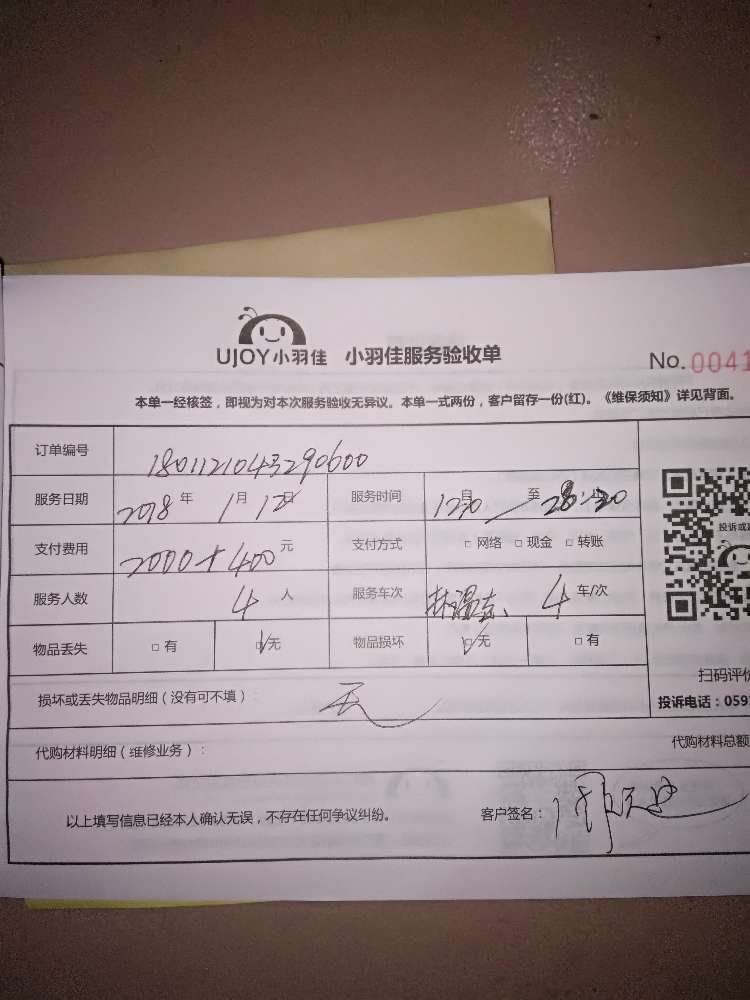 UJOY小羽佳 小羽佳服务验收单
No. 0041
本单一经核签，即视为对本次服务验收无异议。本单一式两份，客户留存一份(红)。《维保须知》详见背面。
订单编号 1801121043290600
服务日期 2018 年 1 月 12 日 服务时间 自 至 20
支付费用 2000+400 元 支付方式 □ 网络 □ 现金 □ 转账
投诉或
服务人数 4 人 服务车次 林温 4 车/次
物品丢失 □ 有 □ 无 物品损坏 □ 无 □ 有
扫码评价
损坏或丢失物品明细（没有可不填） 无
投诉电话：059
代购材料明细（维修业务）： 代购材料总额
以上填写信息已经本人确认无误，不存在任何争议纠纷。 客户签名：